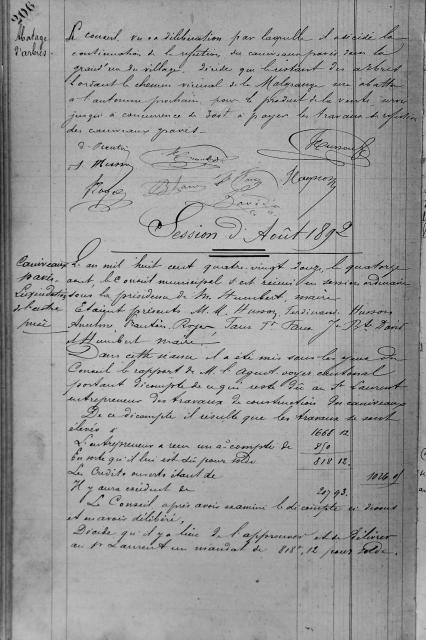 206
Abatage
d'arbres
Le conseil vu sa délibération par laquelle il a décidé la
continuation de la réfection des caniveaux pavés dans la
grand'rue du village, décide que le restant des arbres
bordant le chemin vicinal de la Malgrange sera abattu
à l'automne prochain, pour le produit de la vente, servir
jusqu'à concurrence de à payer les travaux de réfection
des caniveaux pavés.
Session d'Août 1892
Caniveaux
pavés
Liquidation
de l'entre
prise
L'an mil huit cent quatre-vingt douze, le quatorze
août, le Conseil municipal s'est réuni en session ordinaire
sous la présidence de M. Humbert, maire
Etaient présents M. M. Husson, Ferdinand, Husson
Anselme, Rautin, Royer,
et Humbert maire.
Dans cette séance il a été mis sous les yeux du
Conseil le rapport de M. l'Agent-voyer cantonal
portant décompte de ce qui reste dû au Sr Laurent
entrepreneur des travaux de construction des caniveaux
De ce décompte il résulte que les travaux se sont
élevés à 1668 12
L'entrepreneur a reçu un à-compte de 850
En sorte qu'il lui est dû pour solde 818 12
Les Crédits ouverts étant de 1026 05
Il y aura excédent de 207 93.
Le Conseil, après avoir examiné le décompte ci-dessus
et en avoir délibéré,
Décide qu'il y a lieu de l'approuver et de délivrer
au Sr Laurent un mandat de 818f,12 pour solde.